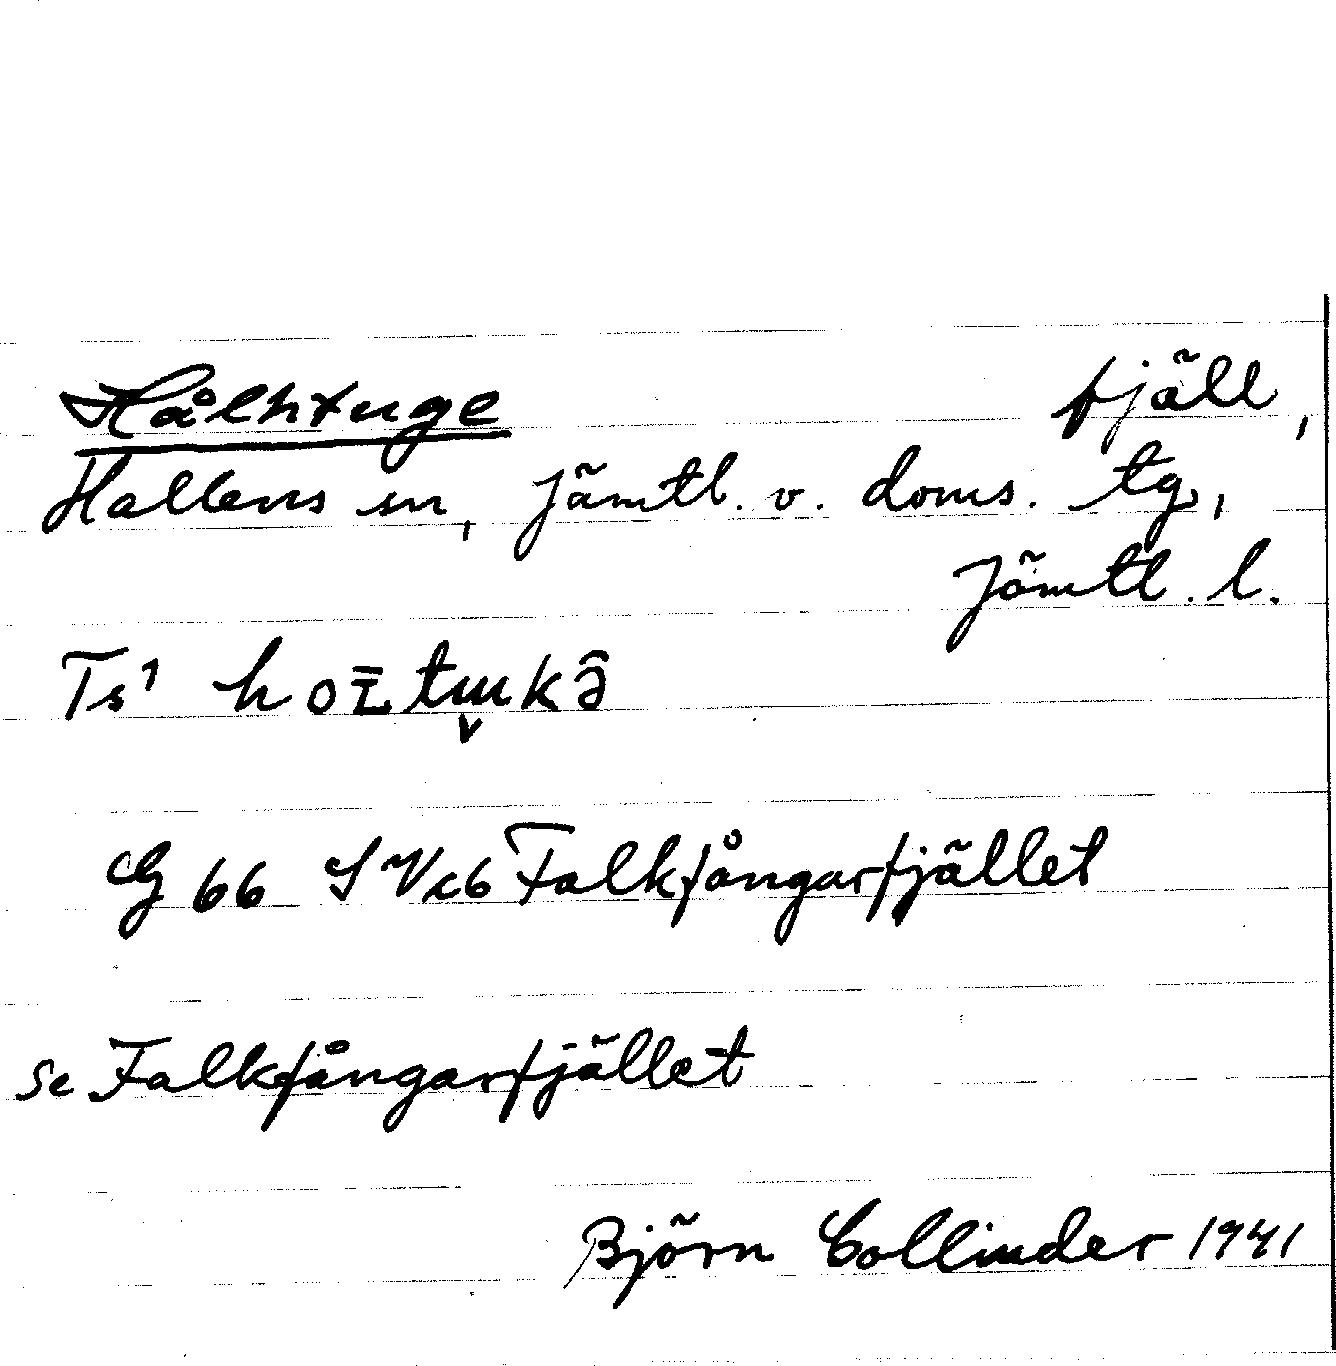 Håhkuge fjäll,
Hallens sn, Jämtl. v. doms. tg,
Jämtl. l.
Ts1
G 66 S Vcb Falkfångarfjället
se Falkfångarfjället
Björn Collinder 1941